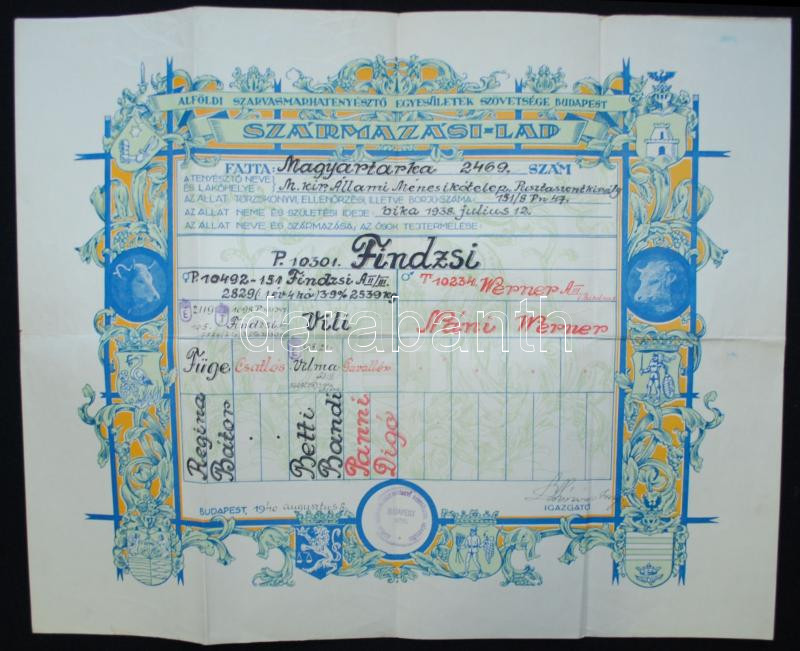 ALFÖLDI SZARVASMARHATENYÉSZTŐ EGYESÜLETEK SZÖVETSÉGE BUDAPEST
SZÁRMAZÁSI-LAP
FAJTA: Magyartarka 2469. SZÁM
A TENYÉSZTŐ NEVE
ÉS LAKÓHELYE: M. kir. Állami Ménesikótelep, Pusztaszentkirály
AZ ÁLLAT TÖRZSKÖNYVI, ELLENŐRZÉSI, ILLETVE BORJÚSZÁMA: 151/8 Pn 47.
AZ ÁLLAT NEME ÉS SZÜLETÉSI IDEJE: bika 1938. július 12.
AZ ÁLLAT NEVE ÉS SZÁRMAZÁSA, AZ ŐSÖK TEJTERMELÉSE:
P. 10301. Findzsi
P. 10492-151 Findzsi A II/III.
♂ T 10234. Werner A III
2829 3.9% 2539 kg
Findzsi Vili Néni Werner
darabanth
Füge Csatlós Vilma Gavallér
Regina Bátor Betti Bandi Panni Digó
BUDAPEST, 1940 augusztus 8.
IGAZGATÓ
BUDAPEST